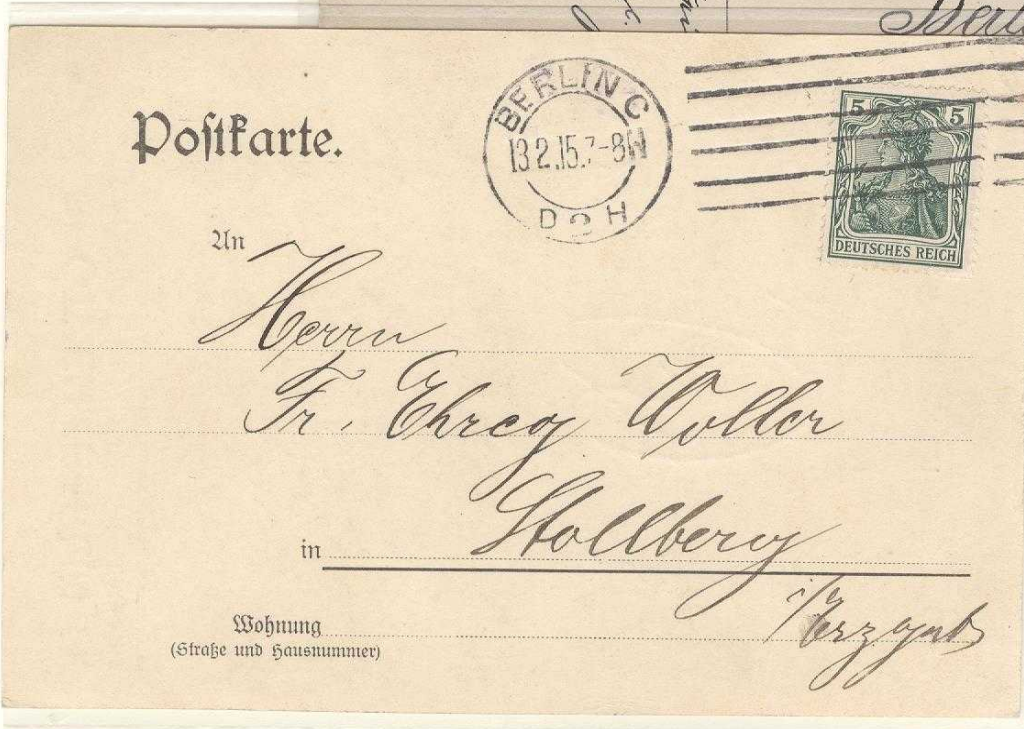 Berl
Postkarte.
BERLIN C
13.2.15.7-8N
D 2 H
5 5
DEUTSCHES REICH
An
Herrn
Fr. Ehreg Woller
in Stollberg
i/Erzgeb
Wohnung
(Straße und Hausnummer)